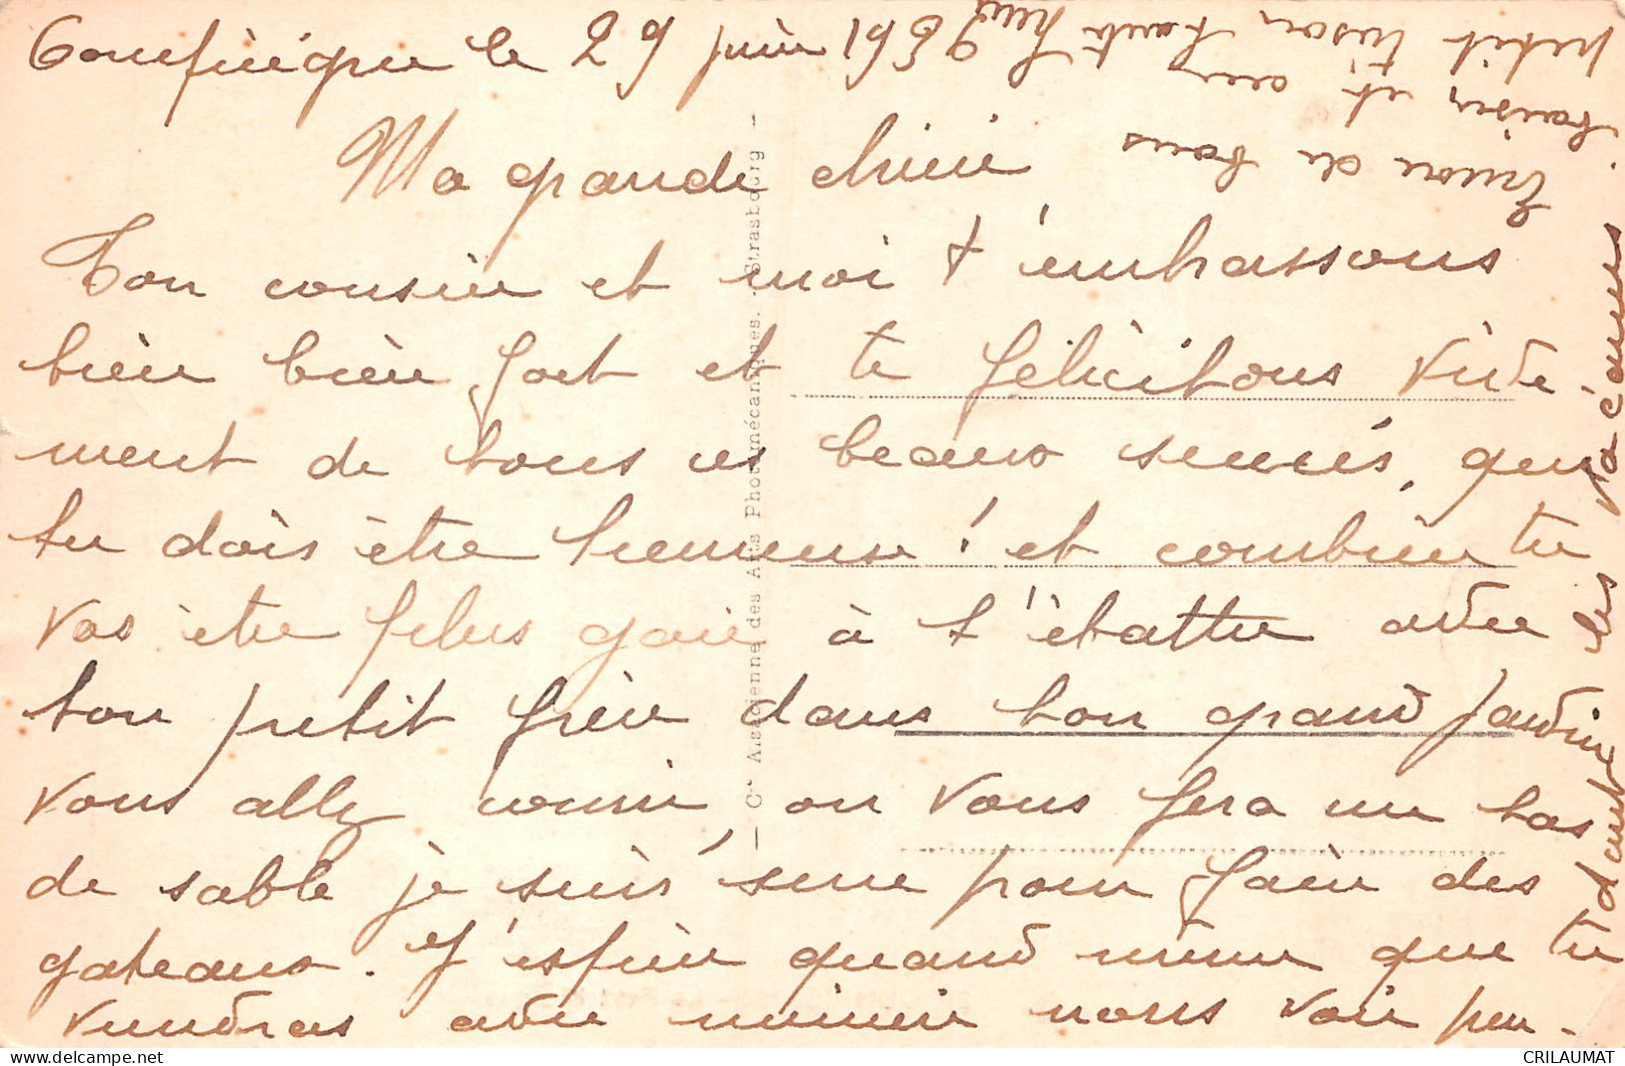 le 26 juin 1936
Ma grande chérie
Ton cousin et moi t'embrassons
bien bien fort et te félicitons vive
ment de tous ces beaux succès, que
tu dois être heureuse ! et combien tu
vas être plus gaie à t'ébattre avec
ton petit frère dans ton grand jardin
vous allez courir, on vous fera un tas
de sable je suis sûre pour faire des
gateaux. J'espère quand même que tu
viendras avec mimie nous voir pen-
dant les vacances
Encore de bons
baisers et au
petit tison
— Cie Alsacienne des Arts Photomécaniques. - Strasbourg —
CRILAUMAT